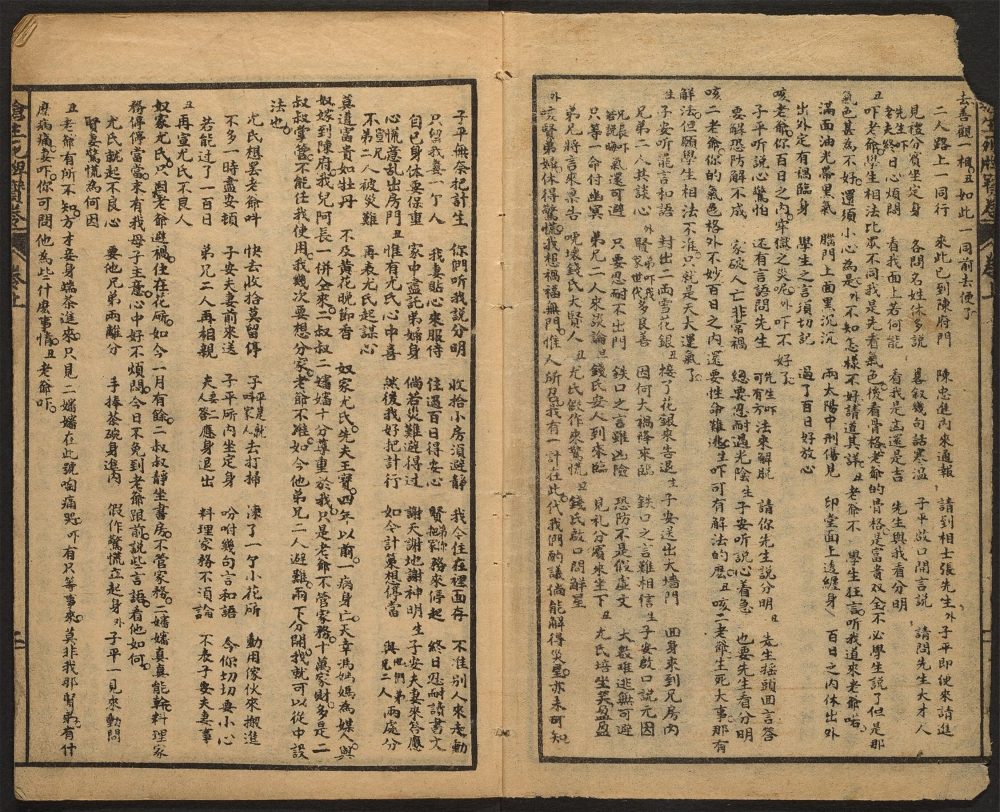 去善觀一相丑如此一同前去便了
二人路上一同行 來此已到陳府門 陳忠進內來通報 請到相士張先生外子平即便來請進
見後分賓坐定身 各問名姓休多說 畧叙幾句話寒溫 子平啟口開言說 請問先生大才人
老夫終日心煩悶 看我面上若何能 看我是凶還是吉 先生與我看分明
丑吓老爺學生相法比眾不同我是先看氣色後看骨格老爺的骨格是富貴双全不必學生說了但是那
氣色甚為不好還須小心為是外不知怎樣不好請道其詳丑老爺不 學生狂言听我道來老爺咭
滿面油光帶黑氣 腦門上面黑沉沉 兩太陽中刑傷見 印堂面上透纏身 百日之內休出外
出外定有禍臨身 學生之言須切記 過了百日好放心
咳老爺你百日之內牢獄之災呢外吓不好了
子平听說心驚怕 還有言語問先生 先生吓可有方法來解脫 請你先生說分明 丑先生搖頭回言答
要解恐防解不成 家破人亡非常禍 總要忍耐過光陰生子安听說心着急 也要先生看分明
咳二老爺你的氣色格外不妙百日之內還要性命難逃生吓可有解法的麽丑咳二老爺生死大事那有
解法但願學生相法不准只就是天大運氣
生子安听能言和語 封出二両雪花銀丑接了花銀來告退生子安送出大墻門 回身來到兄房內
兄弟二人共談心外賢弟吓我家世代多良善 因何大禍降來臨 鉄口之言難相信生子安啟口說元因
兄長吓若說晦氣還可避 只要忍耐不出門 鉄口之言雖凶險 恐防不是假虛文 大數难逃無可避
只等一命付幽冥 弟兄二人來談論旦錢氏安人到來臨 見礼分賓來坐下丑尤氏堦坐笑盈盈
弟兄將言來禀告 唬壞錢氏大賢人丑尤氏做作來驚慌旦錢氏啟口問解星
外咳賢弟弟婦休得驚慌我想禍福無門惟人所召我有一計在此代我們酌議倘能解得災星亦未可知
子平無奈把計生 你們听我說分明 收拾小房須避靜 我今住在裡面存 不准別人來走動
只留我妻一个人 我妻貼心來服侍 住過百日得安心 賢弟你把家務來停起 終日忍耐讀書文
自已身体要保重 家中盡託弟婦身 倘若災難避得过 謝天謝地謝神明生子安夫妻來答應
心慌意乱出房門丑惟有尤氏心中喜 然後我好把計行 如今計策想停當 與他們兄弟二人兩處分
不第二人被災難 再表尤氏起謀心
莫道富貴如牡丹 不及黃花晚節香 奴家尤氏先夫王賢四年以前一病身亡夫幸馮媽媽為媒與
奴嫁到陳府我兒阿長一併全來二叔叔二嬸嬸十分尊重於我只是老爺不管家務十萬家財多是二
叔叔掌管不能任我使用我幾次要想分家老爺不准如今他弟兄二人避難兩下分開我就可以從中設
法也
尤氏想罢老爺咩 快去收拾莫留停 子平是就叫家人去打掃 凍了一个小花所 動用傢伙來搬進
不多一時盡安頓 子安夫妻前來送 子平所內坐定身 吩咐幾句言和語 今你切切要小心
若能过了一百日 弟兄二人再相親 夫人簽二應身退出 料理家務不須論 不表子安夫妻事
丑再宣尤氏不良人
奴家尤氏只因老爺避禍住在花所如今一月有餘二叔叔靜坐書房不管家務二嬸嬸真真能幹料理家
務停停當當來有我母子主意心中好不煩悶今日不免到老爺跟前說些言語看他如何
尤氏就起不良心 要他兄弟兩離分 手捧茶碗身進內 假作驚慌立起身外子平一見來動問
賢妻驚慌為何因
丑老爺有所不知方才妾身端茶進來只見二嬸嬸在此號啕痛哭外吓有只等事來莫非我那賢弟有什
麽病痛妻吓你可問他為些什麽事情丑老爺吓
卷上